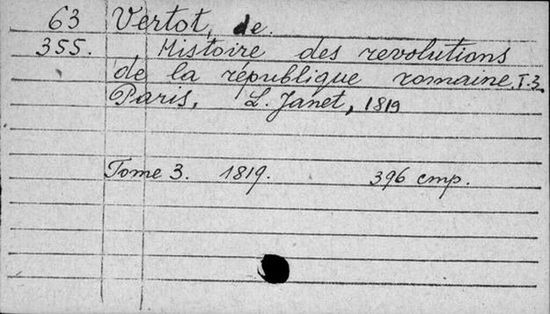 63 Vertot, de.
355. Histoire des revolutions
de la république romaine. T-3.
Paris, L. Janet, 1819
Tome 3. 1819. 396 cmp.